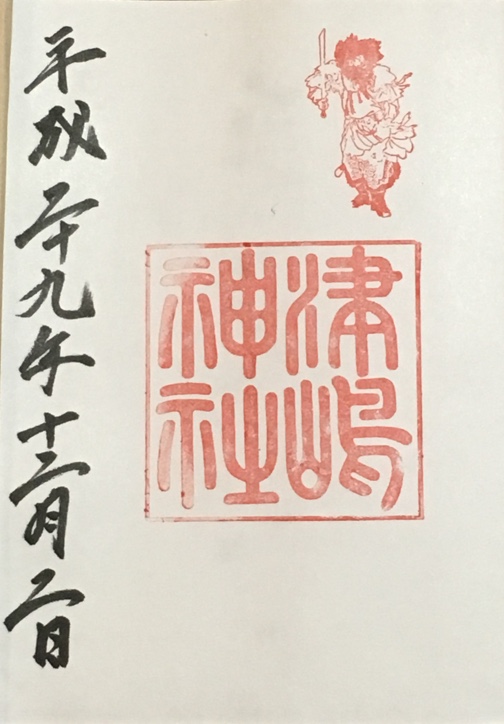 津嶋
神社
平成二十九年十二月二日